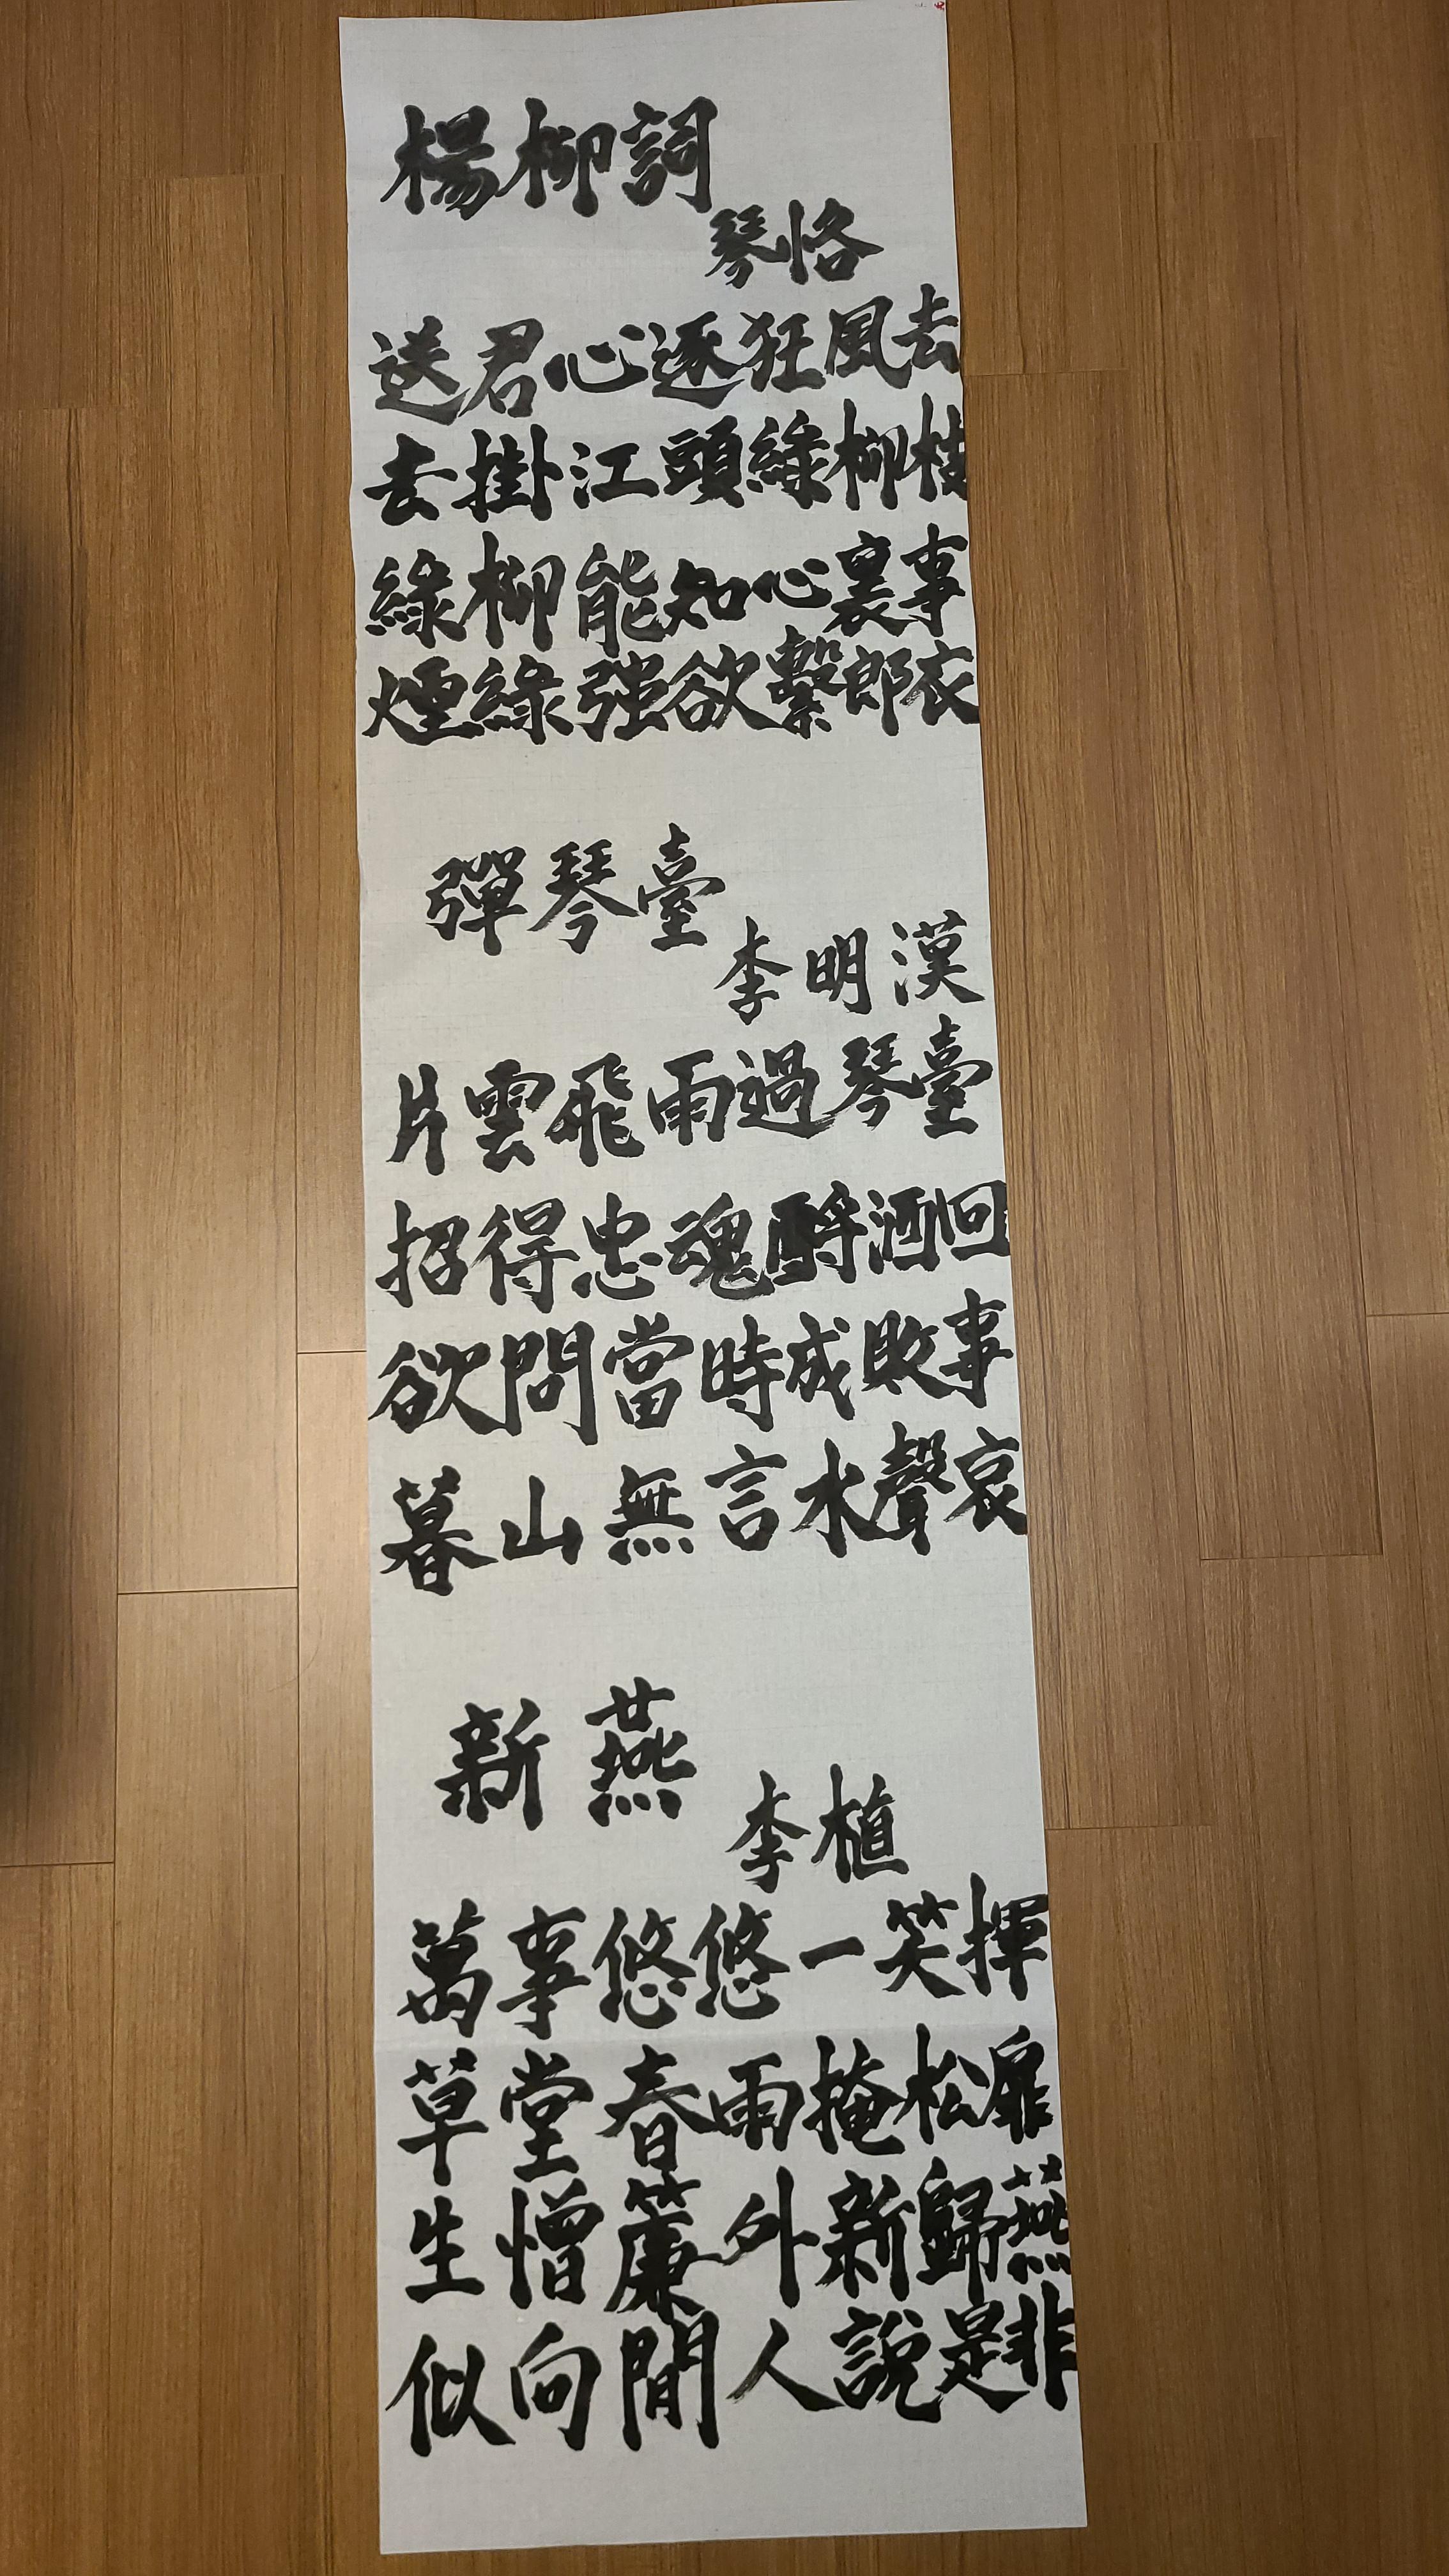 楊柳詞
琴恪
送君心逐狂風去
去掛江頭綠柳枝
綠柳能知心裏事
煙綠強欲繫郎衣
彈琴臺
李明漢
片雲飛雨過琴臺
招得忠魂酹酒回
欲問當時成敗事
暮山無言水聲哀
新燕
李植
萬事悠悠一笑揮
草堂春雨掩松扉
生憎簾外新歸燕
似向閒人說是非